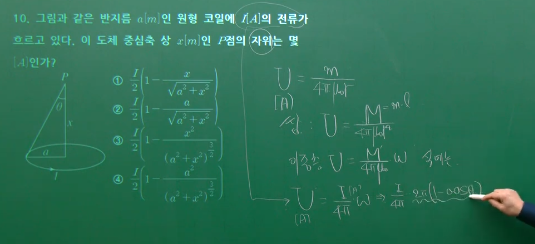 10. 그림과 같은 반지름 a[m]인 원형 코일에 I[A]의 전류가
흐르고 있다. 이 도체 중심축 상 x[m]인 P점의 자위는 몇
[A]인가?
① I/2(1 - x/√(a²+x²))
② I/2(1 - a/√(a²+x²))
③ I/2(1 - x²/(a²+x²)^(3/2))
④ I/2(1 - a²/(a²+x²)^(3/2))
P
θ
x
a
I
U = m/4πμ₀r
[A]
U = M/4πμ₀r²
= m·l
U = M/4πμ₀ ω
U = I/4π ω ⇒ I/4π 2π(1 - cosθ)
[A]